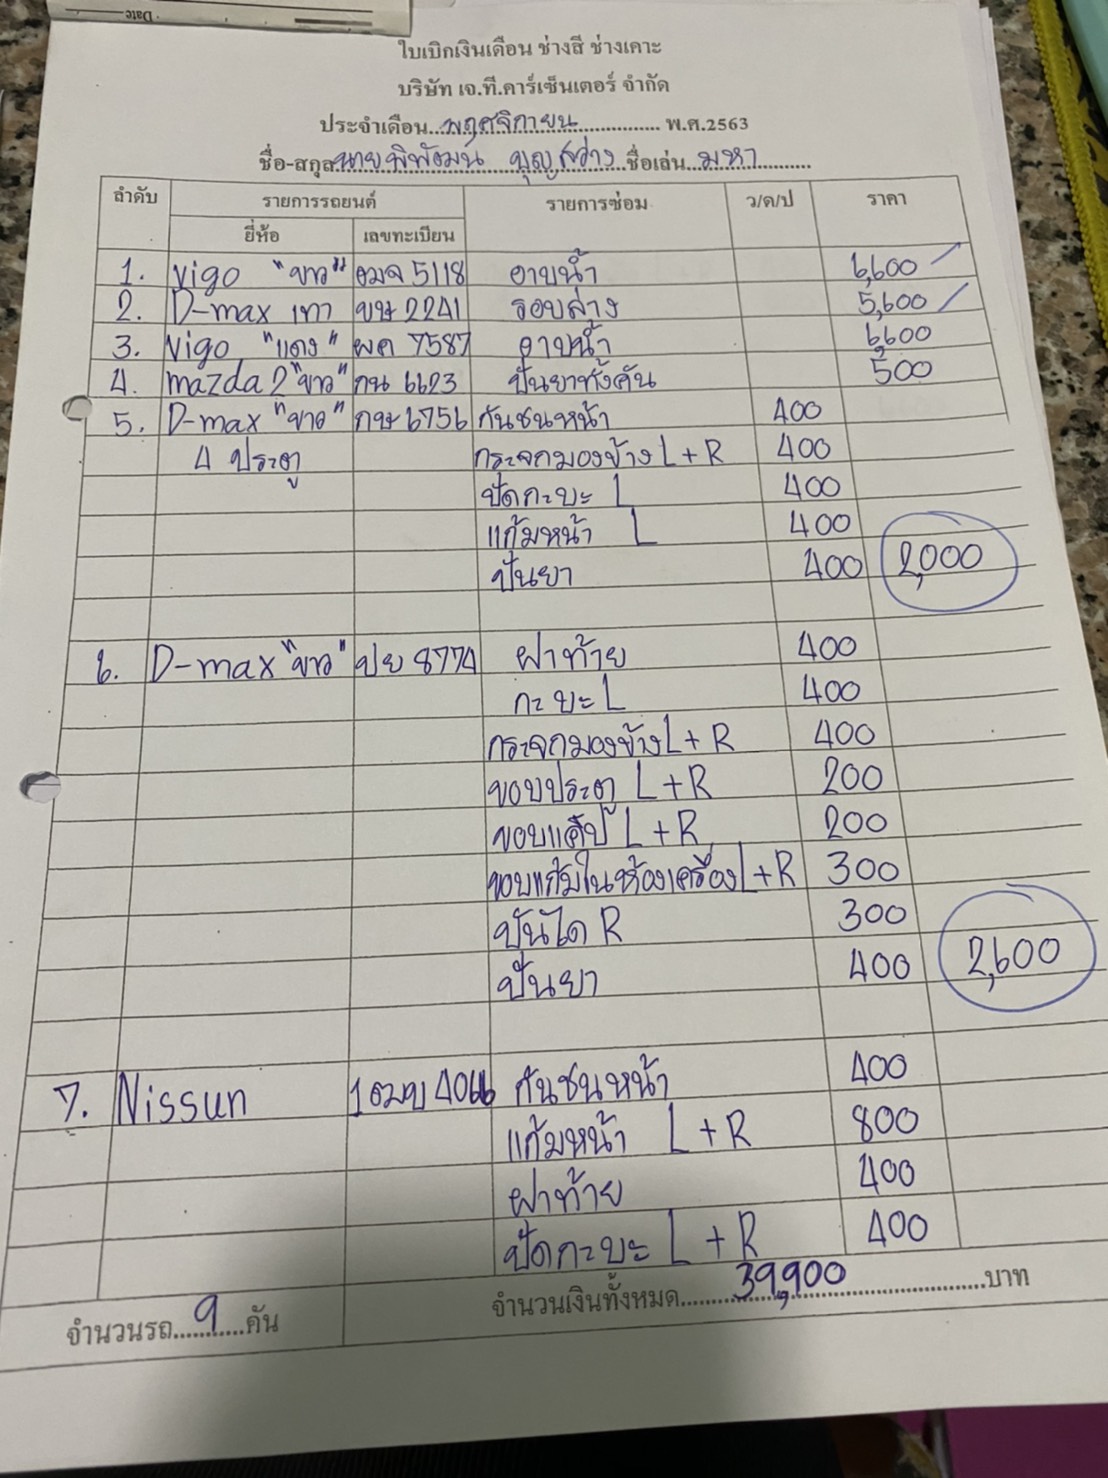 Date
ใบเบิกเงินเดือน ช่างสี ช่างเคาะ
บริษัท เจ.ที.คาร์เซ็นเตอร์ จำกัด
ประจำเดือน...พฤศจิกายน............ พ.ศ.2563
ชื่อ-สกุล นาย พิพัฒน์ บุญสว่าง ชื่อเล่น...มหา.........
ลำดับ รายการรถยนต์ รายการซ่อม ว/ด/ป ราคา
ยี่ห้อ เลขทะเบียน
1. Vigo "ขาว" 5118 อาบน้ำ 6,600
2. D-max เทา ขษ 2241 รอบล่าง 5,600
3. Vigo "แดง" ผค 7587 อาบน้ำ 6,600
4. mazda 2 "ขาว" กน 6623 ปั่นยาทั้งคัน 500
5. D-max "ขาว" กษ 6756 กันชนหน้า 400
4 ประตู กระจกมองข้าง L+R 400
ปัดกะบะ L 400
แก้มหน้า L 400
ปั่นยา 400 2,000
6. D-max "ขาว" ปย 8774 ฝาท้าย 400
กะบะ L 400
กระจกมองข้าง L+R 400
ขอบประตู L+R 200
ขอบแค๊ป L+R 200
ขอบแก้มในห้องเครื่อง L+R 300
บันได R 300
ปั่นยา 400 2,600
7. Nissun กันชนหน้า 400
แก้มหน้า L+R 800
ฝาท้าย 400
ปัดกะบะ L+R 400
จำนวนรถ....9....คัน จำนวนเงินทั้งหมด......39,900............บาท